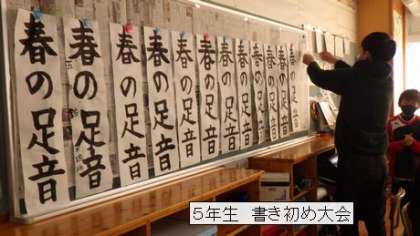 春の足音
春の足音
春の足音
春の足音
春の足音
春の足音
春の足音
春の足音
春の足音
春の足音
春の足音
春の足音
５年生　書き初め大会